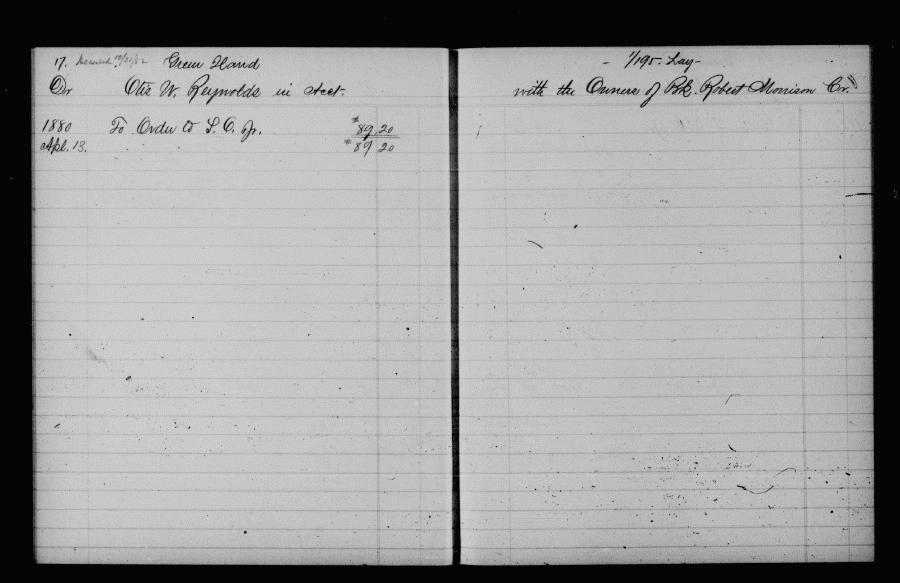 17. Deserted 10/26/82 Green Hand
Dr Otis W. Reynolds in Acct.
1880 To Order to S. O. Jr. $89.20
Apl. 13. $89 20
- 1/195 Lay -
with the Owners of Bk. Robert Morrison Cr.